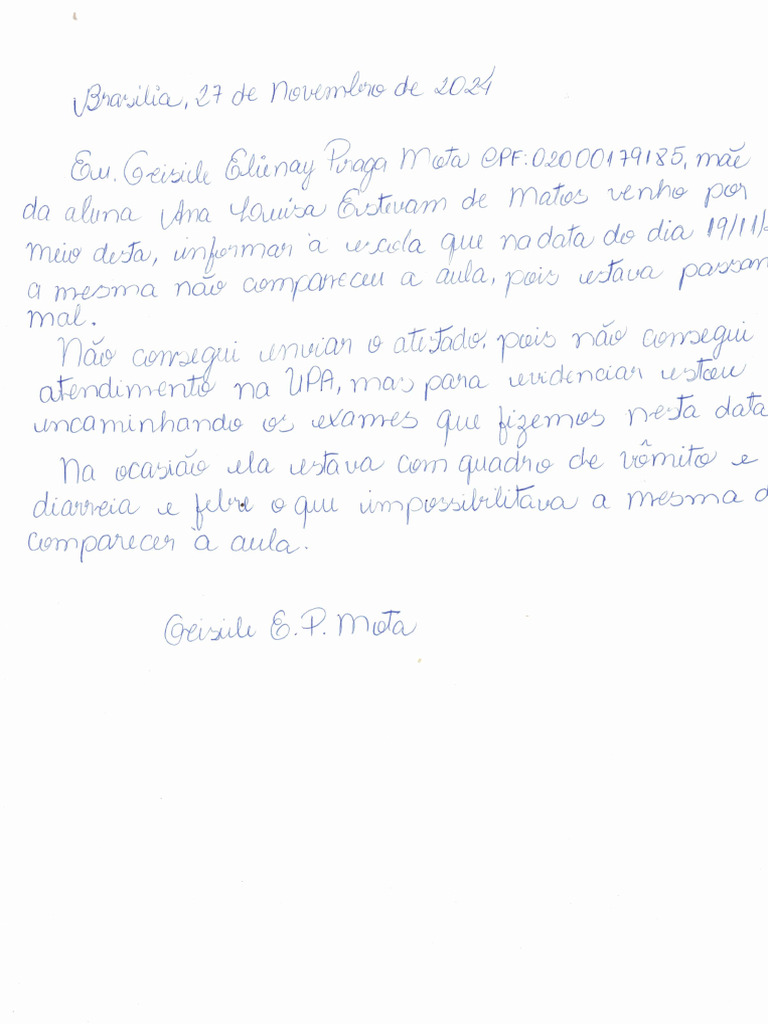 Brasilia, 27 de Novembro de 2024
Eu. Geisiele Elienay Praga Mota CPF: 02000179185, mãe
da aluna Ana Louisa Estevam de Matos venho por
meio desta, informar à escola que na data do dia 19/11/
a mesma não compareceu a aula, pois estava passan
mal.
Não consegui enviar o atestado, pois não consegui
atendimento na UPA, mas para evidenciar estou
encaminhando os exames que fizemos nesta data
Na ocasião ela estava com quadro de vômito e
diarreia e febre o que impossibilitava a mesma d
comparecer à aula.
Geisiele E. P. Mota